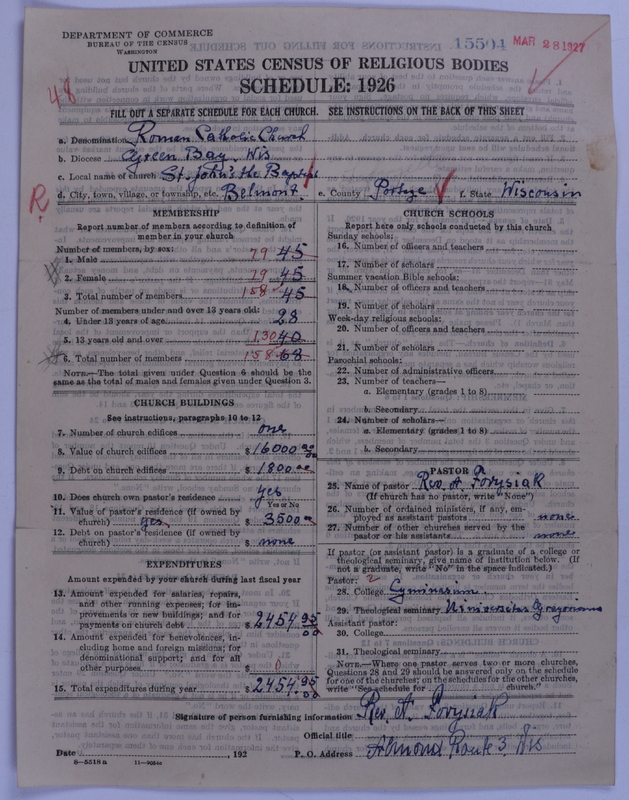 DEPARTMENT OF COMMERCE
BUREAU OF THE CENSUS
WASHINGTON
15504 MAR 28 1927
UNITED STATES CENSUS OF RELIGIOUS BODIES
SCHEDULE: 1926
48
FILL OUT A SEPARATE SCHEDULE FOR EACH CHURCH. SEE INSTRUCTIONS ON THE BACK OF THIS SHEET
a. Denomination Roman Catholic Church
b. Diocese Green Bay, Wis
c. Local name of church St. John's the Baptist
R
d. City, town, village, or township, etc. Belmont. e. County Portage f. State Wisconsin
MEMBERSHIP
Report number of members according to definition of member in your church
Number of members by sex:
1. Male 79 45
2. Female 79 45
3. Total number of members 158 45
Number of members under and over 13 years old:
4. Under 13 years of age 28
5. 13 years old and over 130 40
6. Total number of members 158 68
NOTE.—The total given under Question 6 should be the same as the total of males and females given under Question 3.
CHURCH BUILDINGS
See instructions, paragraphs 10 to 12
7. Number of church edifices one
8. Value of church edifices $ 16000 00
9. Debt on church edifices $ 1800 00
10. Does church own pastor's residence yes
Yes or No
11. Value of pastor's residence (if owned by church) yes $ 3500 00
12. Debt on pastor's residence (if owned by church) $ none
EXPENDITURES
Amount expended by your church during last fiscal year
13. Amount expended for salaries, repairs, and other running expenses; for improvements or new buildings; and for payments on church debt $ 2454.95
14. Amount expended for benevolences, including home and foreign missions; for denominational support; and for all other purposes $ 0
15. Total expenditures during year $ 2454.95
CHURCH SCHOOLS
Report here only schools conducted by this church
Sunday schools:
16. Number of officers and teachers
17. Number of scholars
Summer vacation Bible schools:
18. Number of officers and teachers
19. Number of scholars
Week-day religious schools:
20. Number of officers and teachers
21. Number of scholars
Parochial schools:
22. Number of administrative officers
23. Number of teachers—
a. Elementary (grades 1 to 8)
b. Secondary
24. Number of scholars—
a. Elementary (grades 1 to 8)
b. Secondary
PASTOR
25. Name of pastor Rev. A Forysiak
(If church has no pastor, write "None")
26. Number of ordained ministers, if any, employed as assistant pastors none
27. Number of other churches served by the pastor or his assistants none
If pastor (or assistant pastor) is a graduate of a college or theological seminary, give name of institution below. (If not a graduate, write "No" in the space indicated.)
Pastor: 2
28. College Gymnasium.
29. Theological seminary Universitas Gregoriana
Assistant pastor:
30. College
31. Theological seminary
NOTE.—Where one pastor serves two or more churches, Questions 28 and 29 should be answered only on the schedule for one of the churches; on the schedules for the other churches, write "See schedule for church."
Signature of person furnishing information Rev. A. Forysiak
Official title
Date , 192 P. O. Address Almond Route 3 Wis
8—5518a 11—90544